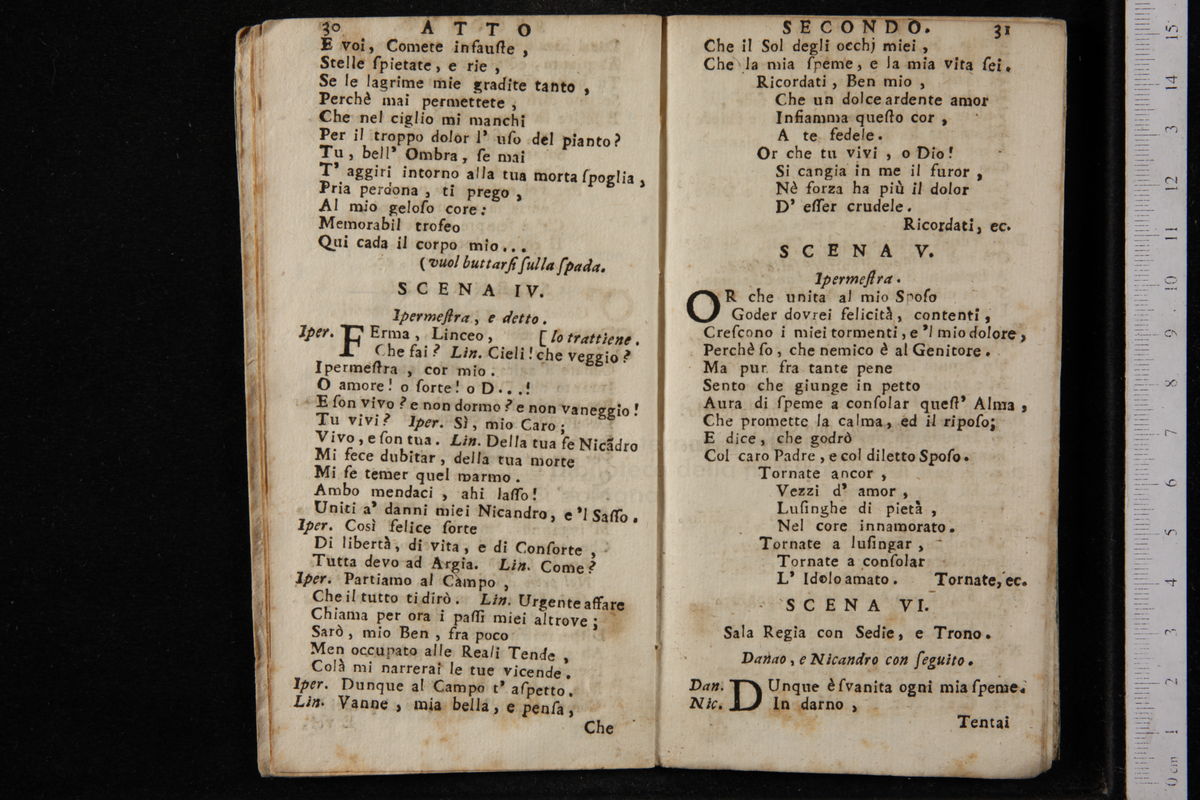 30 ATTO
E voi, Comete infauſte,
Stelle ſpietate, e rie,
Se le lagrime mie gradite tanto,
Perchè mai permettete,
Che nel ciglio mi manchi
Per il troppo dolor l' uſo del pianto?
Tu, bell' Ombra, ſe mai
T' aggiri intorno alla tua morta ſpoglia,
Pria perdona, ti prego,
Al mio geloſo core:
Memorabil trofeo
Qui cada il corpo mio...
(vuol buttarſi ſulla ſpada.
SCENA IV.
Ipermeſtra, e detto.
Iper. FErma, Linceo, [lo trattiene.
Che fai? Lin. Cieli! che veggio?
Ipermeſtra, cor mio.
O amore! o ſorte! o D...!
E ſon vivo? e non dormo? e non vaneggio!
Tu vivi? Iper. Sì, mio Caro;
Vivo, e ſon tua. Lin. Della tua fe Nicãdro
Mi fece dubitar, della tua morte
Mi fe temer quel marmo.
Ambo mendaci, ahi laſſo!
Uniti a' danni miei Nicandro, e 'l Saſſo.
Iper. Così felice ſorte
Di libertà, di vita, e di Conſorte,
Tutta devo ad Argia. Lin. Come?
Iper. Partiamo al Campo,
Che il tutto ti dirò. Lin. Urgente affare
Chiama per ora i paſſi miei altrove;
Sarò, mio Ben, fra poco
Men occupato alle Reali Tende,
Colà mi narrerai le tue vicende.
Iper. Dunque al Campo t' aſpetto.
Lin. Vanne, mia bella, e penſa,
Che
SECONDO. 31
Che il Sol degli occhj miei,
Che la mia ſpeme, e la mia vita ſei.
Ricordati, Ben mio,
Che un dolce ardente amor
Infiamma queſto cor,
A te fedele.
Or che tu vivi, o Dio!
Si cangia in me il furor,
Nè forza ha più il dolor
D' eſſer crudele.
Ricordati, ec.
SCENA V.
Ipermeſtra.
OR che unita al mio Spoſo
Goder dovrei felicità, contenti,
Creſcono i miei tormenti, e 'l mio dolore,
Perchè ſo, che nemico è al Genitore.
Ma pur fra tante pene
Sento che giunge in petto
Aura di ſpeme a conſolar queſt' Alma,
Che promette la calma, ed il ripoſo;
E dice, che godrò
Col caro Padre, e col diletto Spoſo.
Tornate ancor,
Vezzi d' amor,
Luſinghe di pietà,
Nel core innamorato.
Tornate a luſingar,
Tornate a conſolar
L' Idolo amato. Tornate, ec.
SCENA VI.
Sala Regia con Sedie, e Trono.
Danao, e Nicandro con ſeguito.
Dan. DUnque è ſvanita ogni mia ſpeme.
Nic. In darno,
Tentai
0 cm 1 2 3 4 5 6 7 8 9 10 11 12 13 14 15